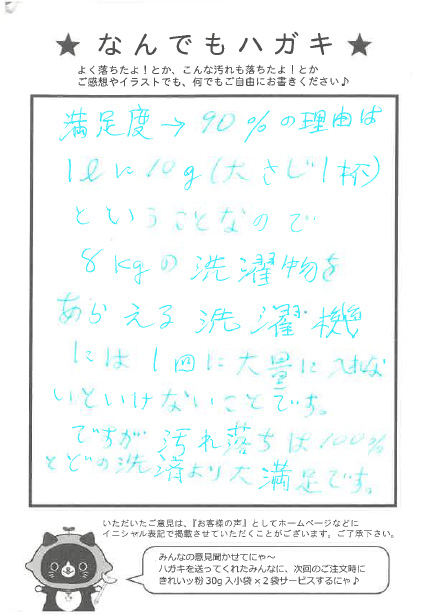 ★ なんでもハガキ ★
よく落ちたよ！とか、こんな汚れも落ちたよ！とか
ご感想やイラストでも、何でもご自由にお書きください♪
満足度→90%の理由は
1ℓに10g(大さじ1杯)
ということなので
8kgの洗濯物を
あらえる洗濯機
には1回に大量に入れな
いといけないことです。
ですが汚れ落ちは100%
とどの洗済より大満足です。
いただいたご意見は、『お客様の声』としてホームページなどに
イニシャル表記で掲載させていただくことがございます。ご了承下さい。
みんなの意見聞かせてにゃ～
ハガキを送ってくれたみんなに、次回のご注文時に
きれいッ粉30g入小袋×2袋サービスするにゃ♪